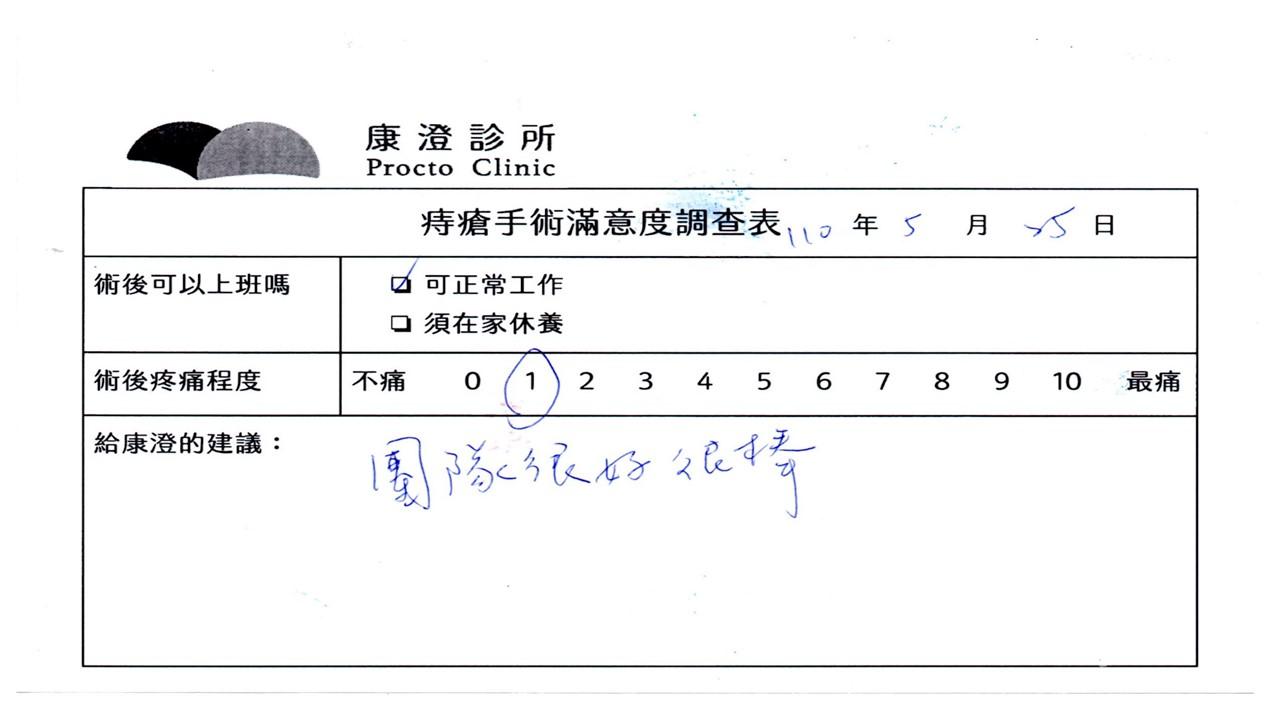 康澄診所
Procto Clinic
痔瘡手術滿意度調查表 110 年 5 月 25 日
術後可以上班嗎
☑ 可正常工作
☐ 須在家休養
術後疼痛程度 不痛 0 1 2 3 4 5 6 7 8 9 10 最痛
給康澄的建議：
團隊很好很棒